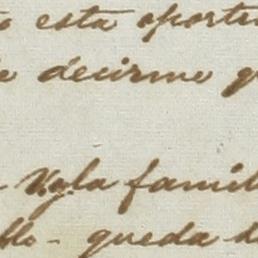 esta oportu
decirme q
la famil
llo - queda d